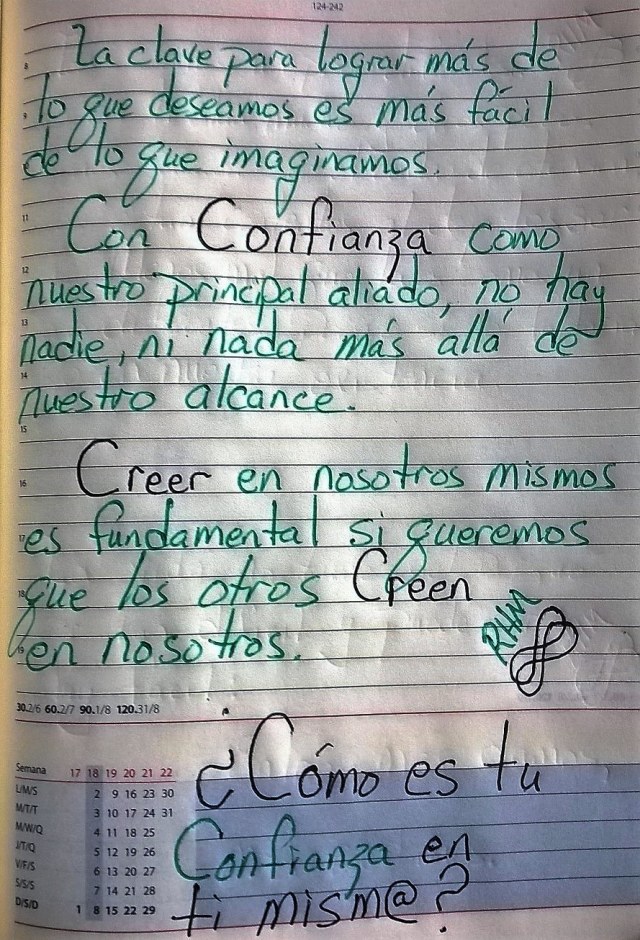 124-242
8
La clave para lograr más de
lo que deseamos es más fácil
de lo que imaginamos.
11
Con Confianza como
12
nuestro principal aliado, no hay
13
nadie, ni nada más allá de
14
nuestro alcance.
15
16
Creer en nosotros mismos
17
es fundamental si queremos
18
que los otros Creen
19
en nosotros.
RHM
30.2/6 60.2/7 90.1/8 120.31/8
¿Cómo es tu
Confianza en
ti mism@?
Semana 17 18 19 20 21 22
L/M/S 2 9 16 23 30
M/T/T 3 10 17 24 31
M/W/Q 4 11 18 25
J/T/Q 5 12 19 26
V/F/S 6 13 20 27
S/S/S 7 14 21 28
D/S/D 1 8 15 22 29